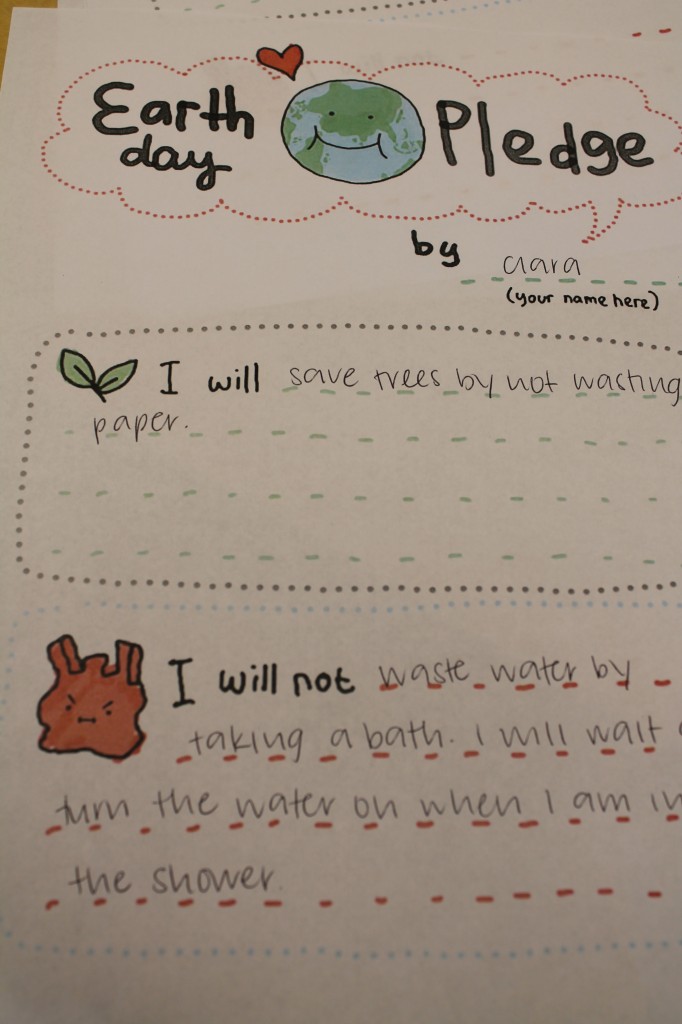 Earth day Pledge
by Clara
(your name here)
I will save trees by not wasting
paper.
I will not waste water by
taking a bath. I will wait
turn the water on when I am in
the shower.